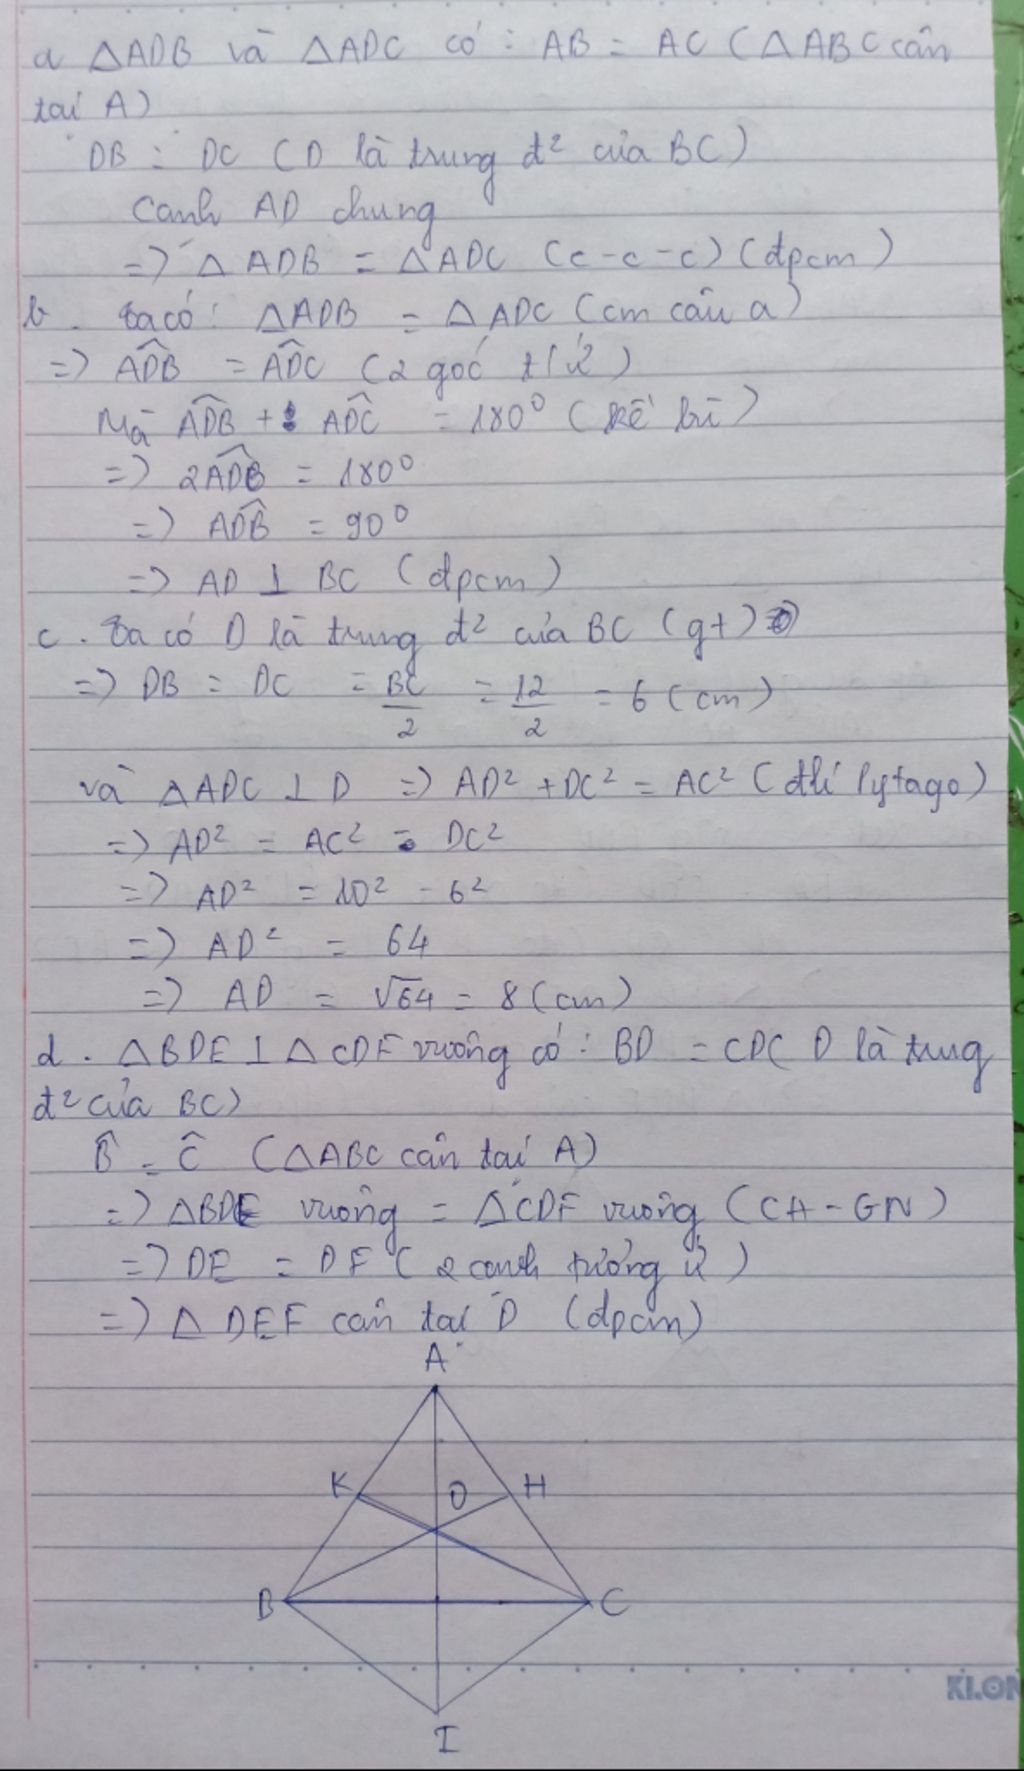 a △ADB và △ADC có : AB = AC (△ABC cân
tại A)
DB = DC (D là trung đ² của BC)
Cạnh AD chung
=> △ADB = △ADC (c-c-c) (đpcm)
b. Ta có: △ADB = △ADC (cm câu a)
=> \widehat{ADB} = \widehat{ADC} (2 góc t/ứ²)
Mà \widehat{ADB} + \widehat{ADC} = 180° (kề bù)
=> 2\widehat{ADB} = 180°
=> \widehat{ADB} = 90°
=> AD ⊥ BC (đpcm)
c. Ta có D là trung đ² của BC (gt)
=> DB = DC = BC/2 = 12/2 = 6 (cm)
và △ADC ⊥ D => AD² + DC² = AC² (đlí Pytago)
=> AD² = AC² - DC²
=> AD² = 10² - 6²
=> AD² = 64
=> AD = √64 = 8 (cm)
d. △BDE ⊥ △CDF vuông có : BD = CD( D là trung
đ² của BC)
\widehat{B} = \widehat{C} (△ABC cân tại A)
=> △BDE vuông = △CDF vuông (CH-GN)
=> DE = DF (2 cạnh tương ứ)
=> △DEF cân tại D (đpcm)
A
K O H
B C
I
KLON